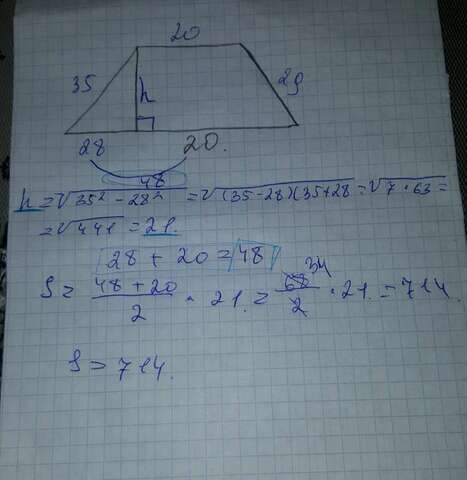 20
35
h
29
28
20.
48
h = √35² - 28² = √(35-28)(35+28 = √7 · 63 =
= √441 = 21.
28 + 20 = 48
34
S = 48 + 20 / 2 · 21. = 68 / 2 · 21. = 714.
S = 714.